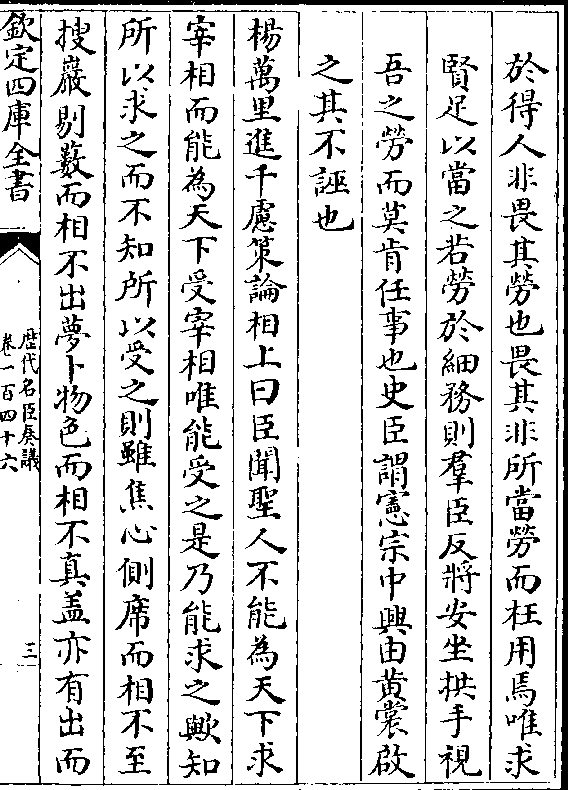 於得人非畏其勞也畏其非所當勞而枉用焉唯求
賢足以當之若勞於細務則羣臣反將安坐拱手視
吾之勞而莫肯任事也史臣謂憲宗中興由黄裳啟
之其不誣也
楊萬里進千慮策論相上曰臣聞聖人不能為天下求
宰相而能為天下受宰相唯能受之是乃能求之歟知
所以求之而不知所以受之則雖焦心側席而相不至
搜巖剔藪而相不出夢卜物色而相不真盖亦有出而
欽定四庫全書
歷代名臣奏議
卷一百四十六
三